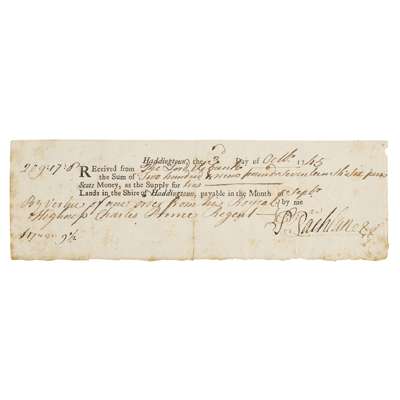 Haddingtoun, the 3d Day of Octbr. 1745
209„17„8 REceived from The Lord Elibank
the Sum of Two hundred & nine pounds Seventeen Shillin
Scots Money, as the Supply for his
Lands in the Shire of Haddingtoun, payable in the Month of Septr.
By vertue of ane order from his Royal by me
Highness Charles Prince Regent
£17„ 9½